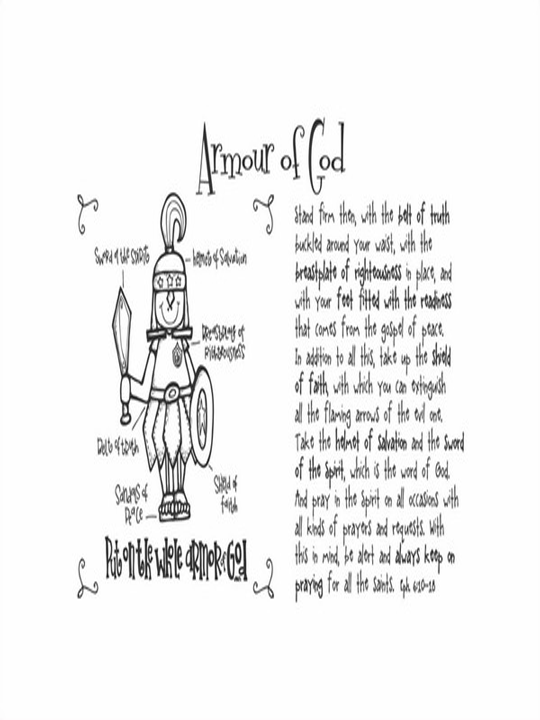 Armour of God
Sword of the Spirit
Helmet of Salvation
Breastplate of
Righteousness
Belt of truth
Sandals of
Peace
Shield of
Faith
Put on the whole armor of God
Stand firm then, with the belt of truth
buckled around your waist, with the
breastplate of righteousness in place, and
with your feet fitted with the readiness
that comes from the gospel of peace.
In addition to all this, take up the shield
of faith, with which you can extinguish
all the flaming arrows of the evil one.
Take the helmet of salvation and the sword
of the Spirit, which is the word of God.
And pray in the Spirit on all occasions with
all kinds of prayers and requests. With
this in mind, be alert and always keep on
praying for all the saints. Eph. 6:10-18